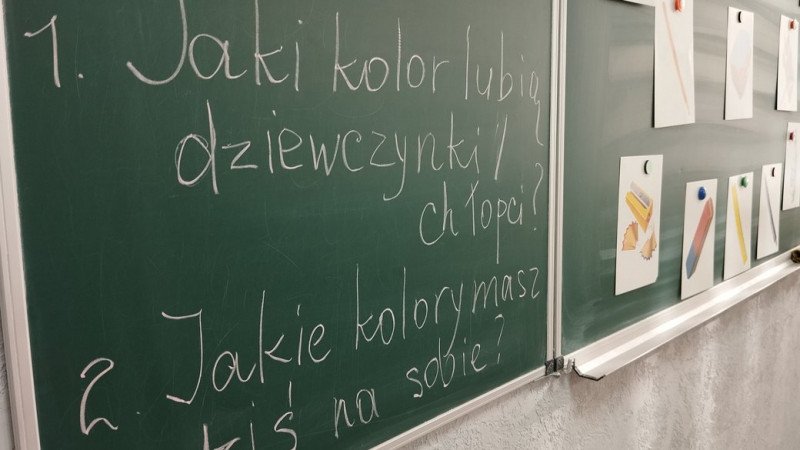 1. Jaki kolor lubią
dziewczynki /
chłopci?
2. Jakie kolory masz
na sobie?